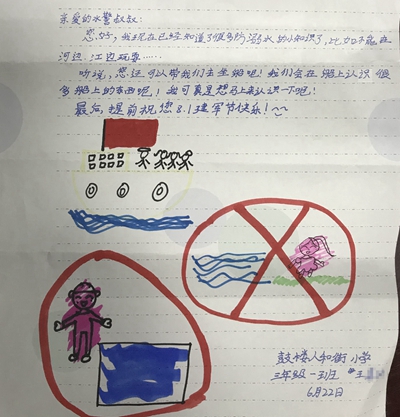 亲爱的水警叔叔:
您好,我现在已经知道了很多防溺水的小知识了,比如不能在
河边、江边玩耍……
听说,您还可以带我们去坐船吧!我们会在船上认识很
多船上的东西呢!我可真是想马上来认识一下吧!
最后,提前祝您8.1建军节快乐!~~
鼓楼人和街小学
三年级一班
6月22日